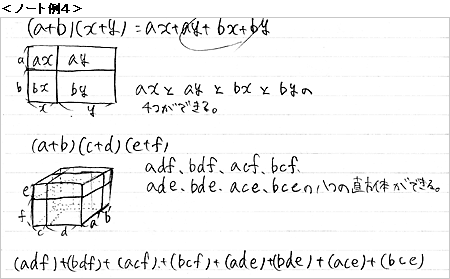 <ノート例4>
(a+b)(x+y) = ax+ay+bx+by
a ax ay
b bx by
x y
axとayとbxとbyの
4つができる。
(a+b)(c+d)(e+f)
adf、bdf、acf、bcf、
ade、bde、ace、bceの八つの直方体ができる。
e
f
c d a b
(adf)+(bdf)+(acf)+(bcf)+(ade)+(bde)+(ace)+(bce)